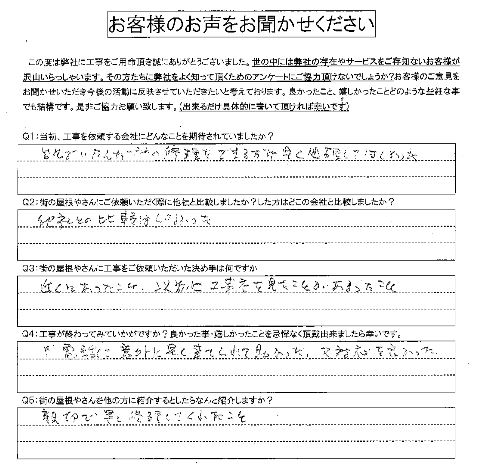 お客様のお声をお聞かせください
この度は弊社に工事をご用命頂き誠にありがとうございました。世の中には弊社の存在やサービスをご存知ないお客様が
沢山いらっしゃいます。その方たちに弊社をよく知って頂くためのアンケートにご協力頂けないでしょうか?お客様のご意見を
お聞かせいただき今後の活動に反映させていただきたいと考えております。良かったこと、嬉しかったことどのような些細な事
でも結構です。是非ご協力お願い致します。(出来るだけ具体的に書いて頂ければ幸いです)
Q1:当初、工事を依頼する会社にどんなことを期待されていましたか?
早く修理して
Q2:街の屋根やさんにご依頼いただく際に他社と比較しましたか?した方はどこの会社と比較しましたか?
他社との比較はしなかった
Q3:街の屋根やさんに工事をご依頼いただいた決め手は何ですか
近くにあったこと、以前に工事を見たことがあったこと
Q4:工事が終わってみていかがですか?良かった事・嬉しかったことを忌憚なく頂戴出来ましたら幸いです。
電話して意外に早く来てくれて 対応も良かった
Q5:街の屋根やさんを他の方に紹介するとしたらなんと紹介しますか?
親切で早く修理してくれたこと